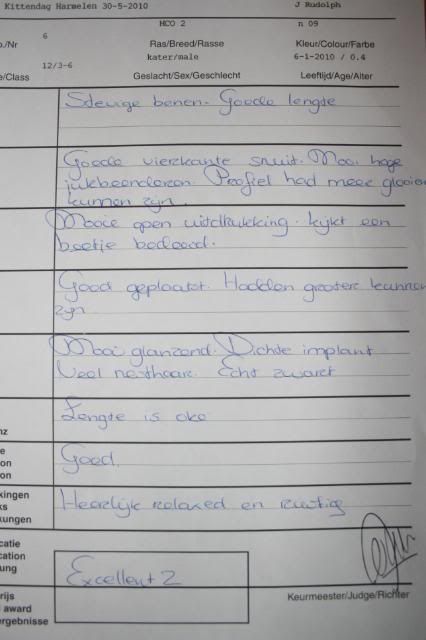 Kittendag Harmelen 30-5-2010 J Rudolph
6 MCO 2 n 09
o./Nr Ras/Breed/Rasse Kleur/Colour/Farbe
12/3-6 kater/male 6-1-2010 / 0.4
e/Class Geslacht/Sex/Geschlecht Leeftijd/Age/Alter
Stevige benen. Goede lengte
Goede vierkante snuit. Mooi hoge
jukbeenderen. Profiel had meer glooien
kunnen zijn.
Mooie open uitdrukking. kijkt een
beetje bedeesd.
Goed geplaatst. Hadden groter kunnen
zijn
Mooi glanzend. Dichte implant
Veel nesthaar. Echt zwart
Lengte is oke
nz
Goed.
e
on
on
kingen Heerlijk relaxed en rustig
ks
kungen
catie
cation
ung
Excellent 2
rijs Keurmeester/Judge/Richter
award
ergebnisse